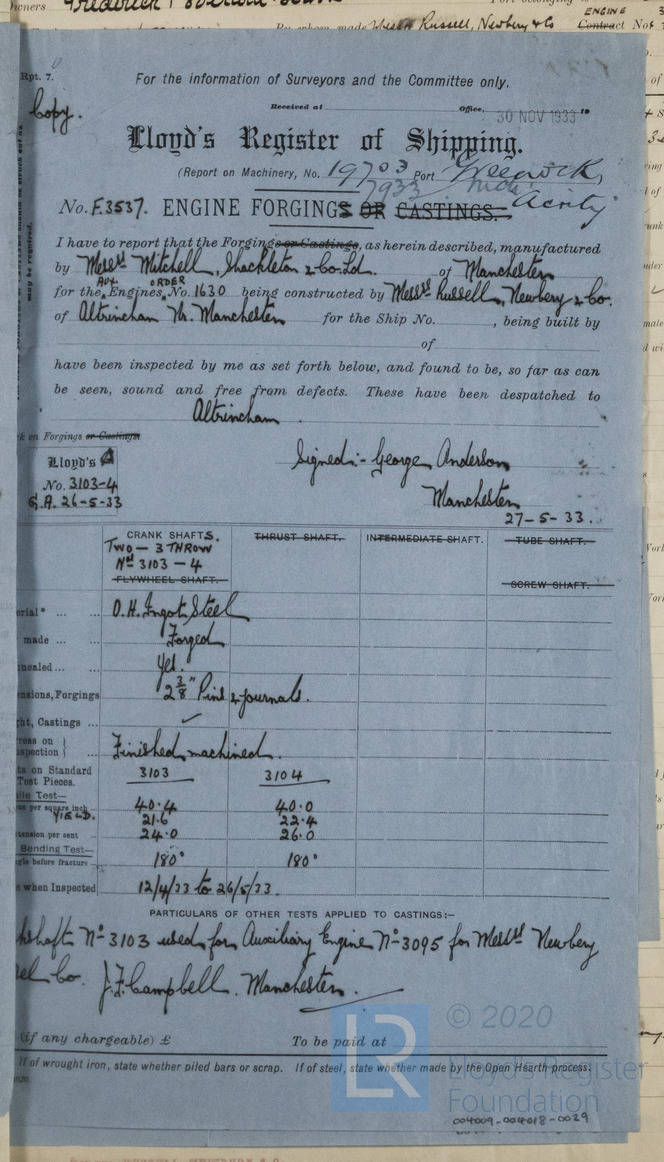 By whom made Messrs Russell, Newbery & Co
ENGINE
Contract No.
Rpt. 7.
For the information of Surveyors and the Committee only.
Copy.
Received at Office, 30 NOV 1933 19
Lloyd's Register of Shipping.
(Report on Machinery, No. 19703 Port Greenock,
7933
Acrity
No. F.3537. ENGINE FORGINGS OR CASTINGS.
I have to report that the Forgings or Castings, as herein described, manufactured
by Messrs Mitchell, Shackleton & Co. Ld. of Manchester
AUX ORDER
for the Engines, No. 1630 being constructed by Messrs Russell, Newbery & Co.
of Altrincham Nr. Manchester for the Ship No. , being built by
of
have been inspected by me as set forth below, and found to be, so far as can
be seen, sound and free from defects. These have been despatched to
Altrincham.
k on Forgings or Castings
Lloyd's
No. 3103-4
G.A. 26-5-33
Signed:- George Anderson
Manchester
27-5-33.
CRANK SHAFTS. THRUST SHAFT. INTERMEDIATE SHAFT. TUBE SHAFT.
TWO - 3 THROW
Nos 3103-4
FLYWHEEL SHAFT. SCREW SHAFT.
erial* ... ... O.H. Ingot Steel
made ... ... Forged
nnealed ... ... Yes.
ensions, Forgings 2 3/8" Pins & journals.
ght, Castings ... ✓
ress on
spection } ... Finished machined.
ts on Standard
Test Pieces. 3103 3104
ile Test—
ns per square inch 40.4 40.0
YIELD. 21.6 22.4
tension per cent 24.0 26.0
Bending Test—
gle before fracture 180° 180°
s when Inspected 12/4/33 to 26/5/33.
PARTICULARS OF OTHER TESTS APPLIED TO CASTINGS:—
kshaft No 3103 used for Auxiliary Engine No 3095 for Messrs Newbery
sel Co. J.F. Campbell. Manchester.
(if any chargeable) £ To be paid at
If of wrought iron, state whether piled bars or scrap. If of steel, state whether made by the Open Hearth process.
LR
© 2020
Lloyd's Register
Foundation
004009-004018-0029